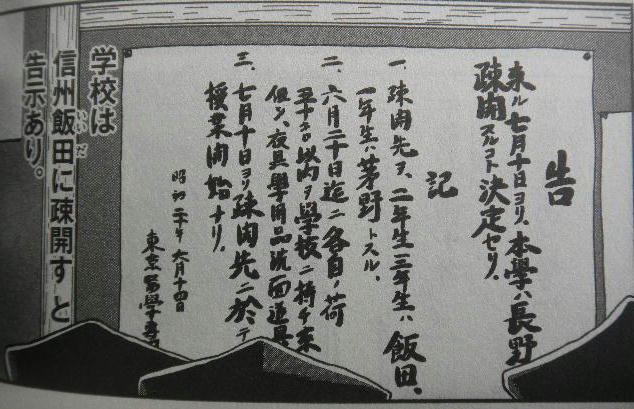 告
来ル七月十日ヨリ、本學ハ長野
疎開スルコト決定セリ。
記
一、疎開先ヲ、二年生三年生ハ飯田、
一年生ハ茅野トスル。
二、六月二十日迄ニ各自ノ荷
以内ヲ學校ニ持チ来
但シ、夜具學用品洗面道具
三、七月十日ヨリ疎開先ニ於テ
授業開始ナリ。
昭和二十年六月十四日
東京醫學專
学校は
信州飯田に疎開すと
いいだ
告示あり。